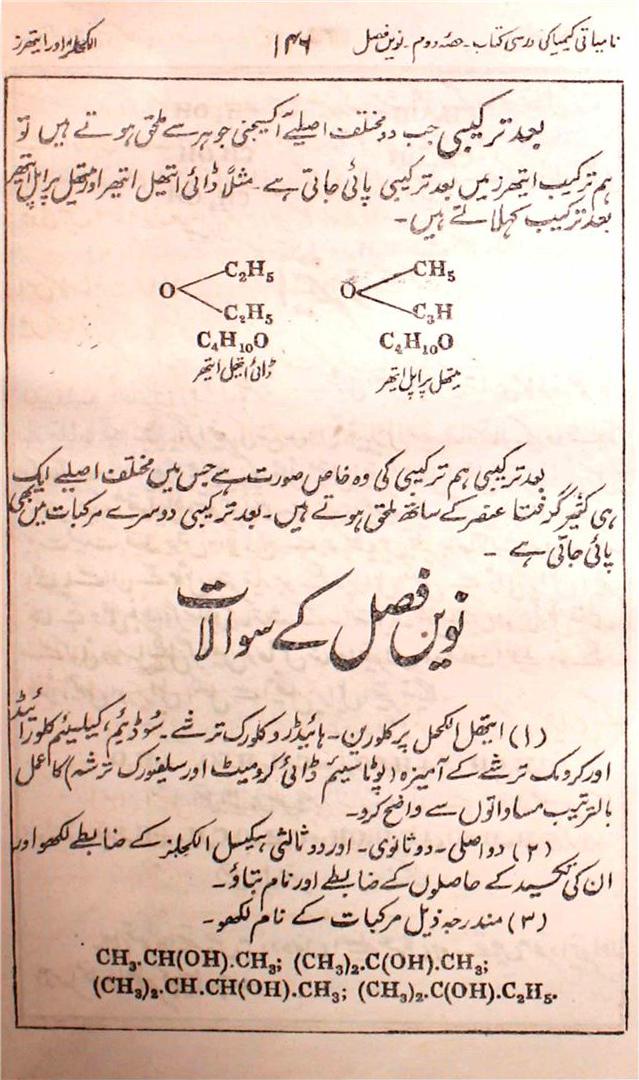 نامیاتی کیمیا کی درسی کتاب - حصّہ دوم - نویں فصل ۱۴۶ الکحلز اور ایتھرز
بعد ترکیبی جب دو مختلف اصلیے آکسیجنی جوہر سے ملحق ہوتے ہیں تو
ہم ترکیب ایتھرز میں بعد ترکیبی پائی جاتی ہے۔ مثلاً ڈائی ایتھل ایتھر اور میتھل پراپل ایتھر
بعد ترکیب کہلاتے ہیں۔
C2H5 CH5
O O
C2H5 C3H
C4H10O C4H10O
ڈائی ایتھل ایتھر میتھل پراپل ایتھر
بعد ترکیبی ہم ترکیبی کی وہ خاص صورت ہے جس میں مختلف اصلیے ایک
ہی کثیر گرفتا عنصر کے ساتھ ملحق ہوتے ہیں۔ بعد ترکیبی دوسرے مرکبات میں بھی
پائی جاتی ہے ۔
نویں فصل کے سوالات
(۱) ایتھل الکحل پر کلورین۔ ہائیڈروکلورک ترشے۔ سوڈیم، کیلسیئم کلورائیڈ
اور کرومک ترشے کے آمیزہ (پوٹاسیئم ڈائی کرومیٹ اور سلیفورک ترشہ) کا عمل
بالترتیب مساداتوں سے واضح کرو۔
(۲) دو اصلی۔ دو ثانوی۔ اور دو ثالثی ہیکسل الکحلز کے ضابطے لکھو اور
ان کی تکسید کے حاصلوں کے ضابطے اور نام بتاؤ۔
(۳) مندرجہ ذیل مرکبات کے نام لکھو۔
CH3.CH(OH).CH3; (CH3)2.C(OH).CH3;
(CH3)2.CH.CH(OH).CH3; (CH3)2.C(OH).C2H5.